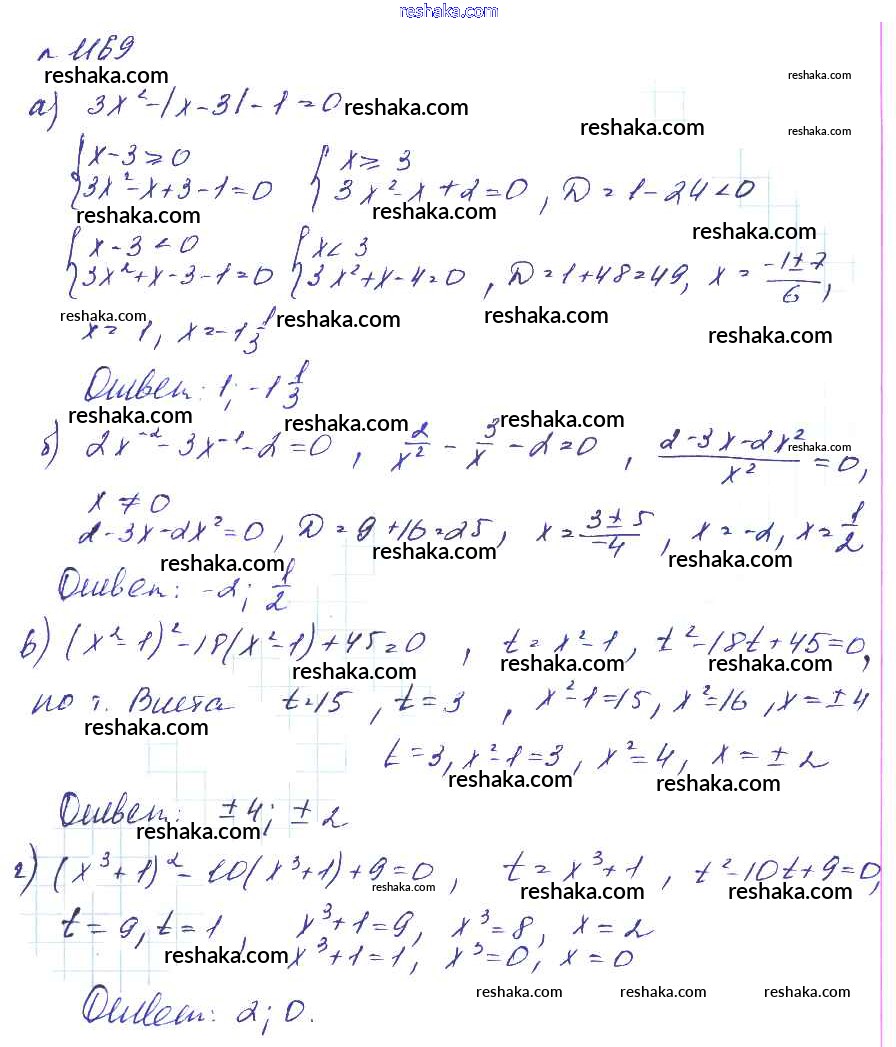 reshaka.com
n 1169
reshaka.com
reshaka.com
а) 3x² - |x - 3| - 1 = 0 reshaka.com
reshaka.com
reshaka.com
{ x - 3 ≥ 0 { x ≥ 3
3x² - x + 3 - 1 = 0 3x² - x + 2 = 0, D = 1 - 24 < 0
reshaka.com reshaka.com
reshaka.com
{ x - 3 < 0 { x < 3
3x² + x - 3 - 1 = 0 3x² + x - 4 = 0, D = 1 + 48 = 49, x = (-1 ± 7)/6,
reshaka.com reshaka.com reshaka.com
reshaka.com
x = 1, x = -1 1/3
Ответ: 1; -1 1/3
reshaka.com reshaka.com reshaka.com
б) 2x⁻² - 3x⁻¹ - 2 = 0, 2/x² - 3/x - 2 = 0, (2 - 3x - 2x²)/x² = 0,
reshaka.com
x ≠ 0
2 - 3x - 2x² = 0, D = 9 + 16 = 25, x = (3 ± 5)/-4, x = -2, x = 1/2
reshaka.com reshaka.com reshaka.com
Ответ: -2; 1/2
в) (x² - 1)² - 18(x² - 1) + 45 = 0, t = x² - 1, t² - 18t + 45 = 0,
reshaka.com reshaka.com reshaka.com
по т. Виета t = 15, t = 3, x² - 1 = 15, x² = 16, x = ± 4
reshaka.com
t = 3, x² - 1 = 3, x² = 4, x = ± 2
reshaka.com reshaka.com
Ответ: ± 4; ± 2
reshaka.com
г) (x³ + 1)² - 10(x³ + 1) + 9 = 0, t = x³ + 1, t² - 10t + 9 = 0,
reshaka.com reshaka.com reshaka.com
t = 9, t = 1, x³ + 1 = 9, x³ = 8, x = 2
reshaka.com x³ + 1 = 1, x³ = 0, x = 0
reshaka.com reshaka.com reshaka.com
Ответ: 2; 0.